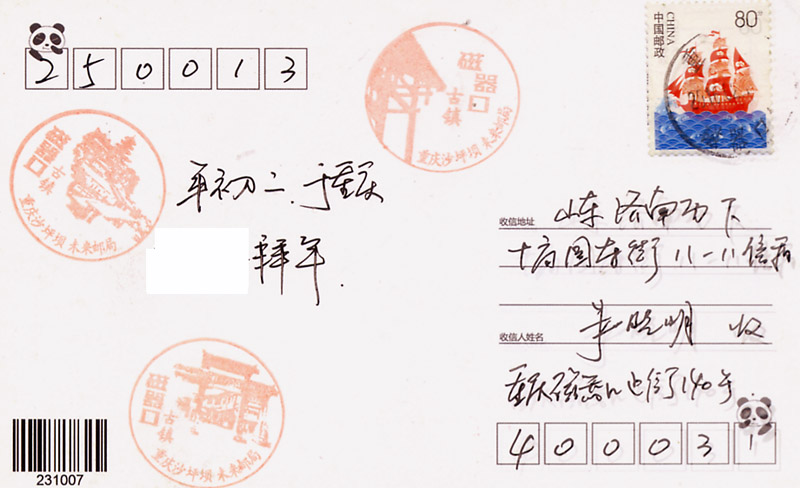 250013
磁器口
古镇
重庆沙坪坝 未来邮局
中国邮政
CHINA
80
磁器口
古镇
重庆沙坪坝 未来邮局
年初二.于重庆
拜年.
收信地址 山东济南历下
十亩园东街
收信人姓名 李晓明 收
重庆磁器口正街140号
400031
磁器口
古镇
重庆沙坪坝 未来邮局
231007